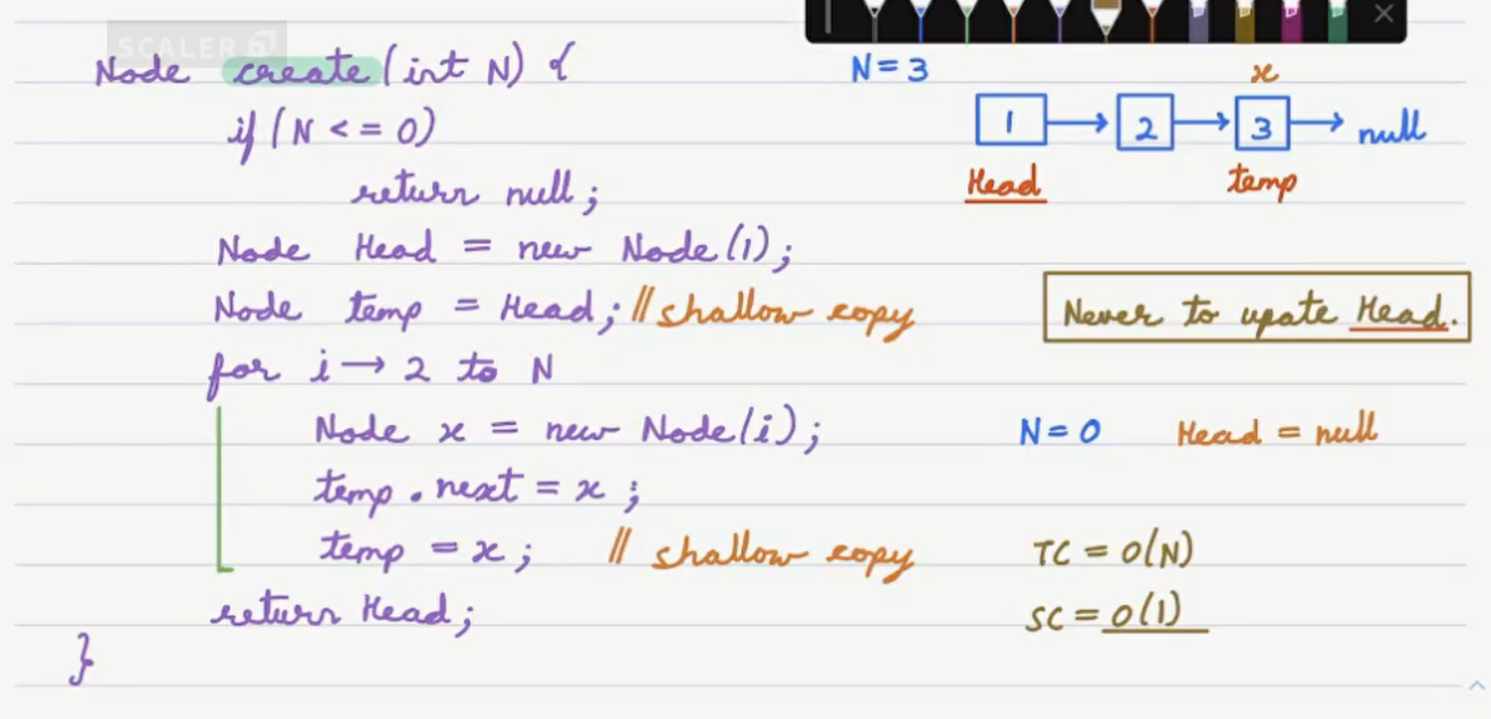 SCALER
Node create(int N) {
if (N <= 0)
return null;
Node Head = new Node(1);
Node temp = Head; // shallow copy
for i → 2 to N
Node x = new Node(i);
temp.next = x;
temp = x; // shallow copy
return Head;
}
N = 3
x
1 → 2 → 3 → null
Head temp
Never to upate Head.
N = 0 Head = null
TC = O(N)
SC = O(1)